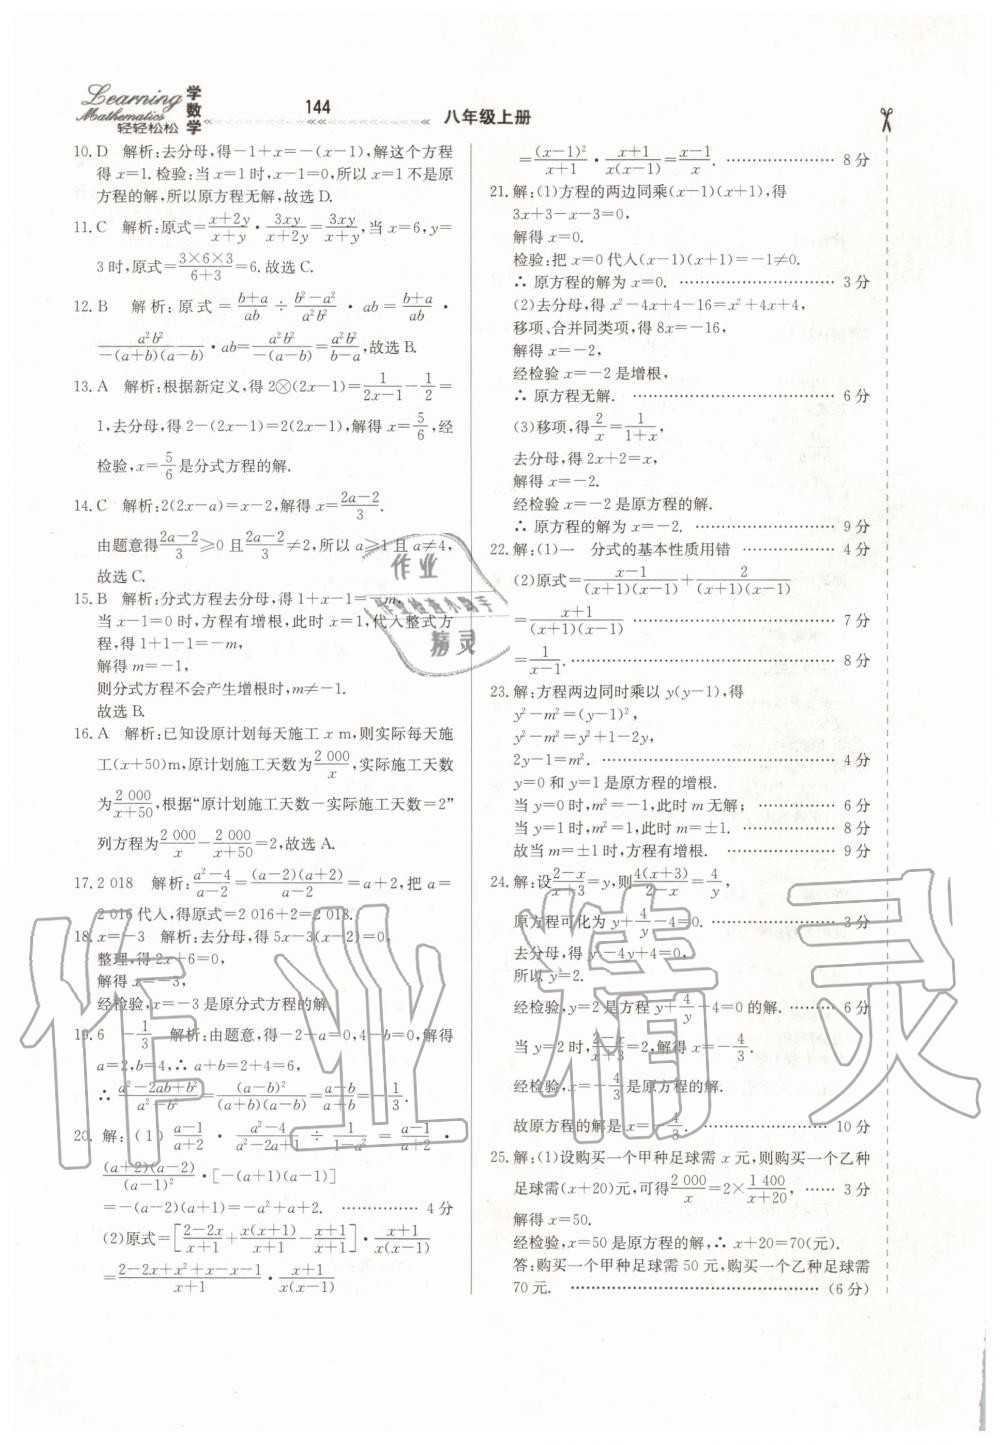 Learning
Mathematics
轻轻松松
学数学
144
八年级上册
10. D 解析:去分母,得-1+x=-(x-1),解这个方程
得x=1.检验:当x=1时,x-1=0,所以x=1不是原
方程的解,所以原方程无解,故选D.
11. C 解析:原式=(x+2y)/(x+y)·3xy/(x+2y)=3xy/(x+y),当x=6,y=
3时,原式=(3×6×3)/(6+3)=6.故选C.
12. B 解析:原式=(b+a)/ab÷(b²-a²)/(a²b²)·ab=(b+a)/ab·
a²b²/(-(a+b)(a-b))·ab=a²b²/(-(a-b))=a²b²/(b-a),故选B.
13. A 解析:根据新定义,得2⊗(2x-1)=1/(2x-1)-1/2=
1,去分母,得2-(2x-1)=2(2x-1),解得x=5/6,经
检验,x=5/6是分式方程的解.
14. C 解析:2(2x-a)=x-2,解得x=(2a-2)/3.
由题意得(2a-2)/3≥0且(2a-2)/3≠2,所以a≥1且a≠4,
故选C.
15. B 解析:分式方程去分母,得1+x-1=-m,
当x-1=0时,方程有增根,此时x=1,代入整式方
程,得1+1-1=-m,
解得m=-1,
则分式方程不会产生增根时,m≠-1.
故选B.
16. A 解析:已知设原计划每天施工x m,则实际每天施
工(x+50)m,原计划施工天数为2 000/x,实际施工天数
为2 000/(x+50),根据“原计划施工天数-实际施工天数=2”
列方程为2 000/x-2 000/(x+50)=2,故选A.
17. 2 018 解析:(a²-4)/(a-2)=(a-2)(a+2)/(a-2)=a+2,把a=
2 016代入,得原式=2 016+2=2 018.
18. x=-3 解析:去分母,得5x-3(x-2)=0,
整理,得2x+6=0,
解得x=-3,
经检验,x=-3是原分式方程的解
19. 6 -1/3 解析:由题意,得-2+a=0,4-b=0,解得
a=2,b=4,∴a+b=2+4=6,
∴(a²-2ab+b²)/(a²-b²)=(a-b)²/((a+b)(a-b))=(a-b)/(a+b)=-1/3.
20. 解:(1)(a-1)/(a+2)·(a²-4)/(a²-2a+1)÷1/(1-a²)=(a-1)/(a+2)·
(a+2)(a-2)/(a-1)²·[-(a+1)(a-1)]
=-(a-2)(a+1)=-a²+a+2. …………… 4分
(2)原式=[(2-2x)/(x+1)+x(x+1)/(x+1)-(x+1)/(x+1)]·(x+1)/(x(x-1))
=(2-2x+x²+x-x-1)/(x+1)·(x+1)/(x(x-1))
=(x-1)²/(x+1)·(x+1)/(x(x-1))=(x-1)/x. ………………… 8分
21. 解:(1)方程的两边同乘(x-1)(x+1),得
3x+3-x-3=0,
解得x=0.
检验:把x=0代入(x-1)(x+1)=-1≠0.
∴原方程的解为x=0. ………………………… 3分
(2)去分母,得x²-4x+4-16=x²+4x+4,
移项、合并同类项,得8x=-16,
解得x=-2,
经检验x=-2是增根,
∴原方程无解. ………………………………… 6分
(3)移项,得2/x=1/(1+x),
去分母,得2x+2=x,
解得x=-2.
经检验x=-2是原方程的解.
∴原方程的解为x=-2. ……………………… 9分
22. 解:(1)一 分式的基本性质用错 ……………… 4分
(2)原式=(x-1)/((x+1)(x-1))+2/((x+1)(x-1))
=(x+1)/((x+1)(x-1)) ……………………………… 7分
=1/(x-1). …………………………………………… 8分
23. 解:方程两边同时乘以y(y-1),得
y²-m²=(y-1)²,
y²-m²=y²+1-2y,
2y-1=m². ……………………………………… 4分
y=0和y=1是原方程的增根.
当y=0时,m²=-1,此时m无解; …………… 6分
当y=1时,m²=1,此时m=±1. ……………… 8分
故当m=±1时,方程有增根. ………………… 9分
24. 解:设(2-x)/(x+3)=y,则4(x+3)/(2-x)=4/y,
原方程可化为y+4/y-4=0. …………………… 3分
去分母,得y²-4y+4=0.
所以y=2.
经检验,y=2是方程y+4/y-4=0的解. ……… 6分
当y=2时,(2-x)/(x+3)=2,解得x=-4/3.
经检验,x=-4/3是原方程的解.
故原方程的解是x=-4/3. …………………… 10分
25. 解:(1)设购买一个甲种足球需x元,则购买一个乙种
足球需(x+20)元,可得2 000/x=2×1 400/(x+20), …… 3分
解得x=50.
经检验,x=50是原方程的解,∴x+20=70(元).
答:购买一个甲种足球需50元,购买一个乙种足球需
70元. ………………………………………… (6分)
作业
作业检查小助手
精灵
作业精灵